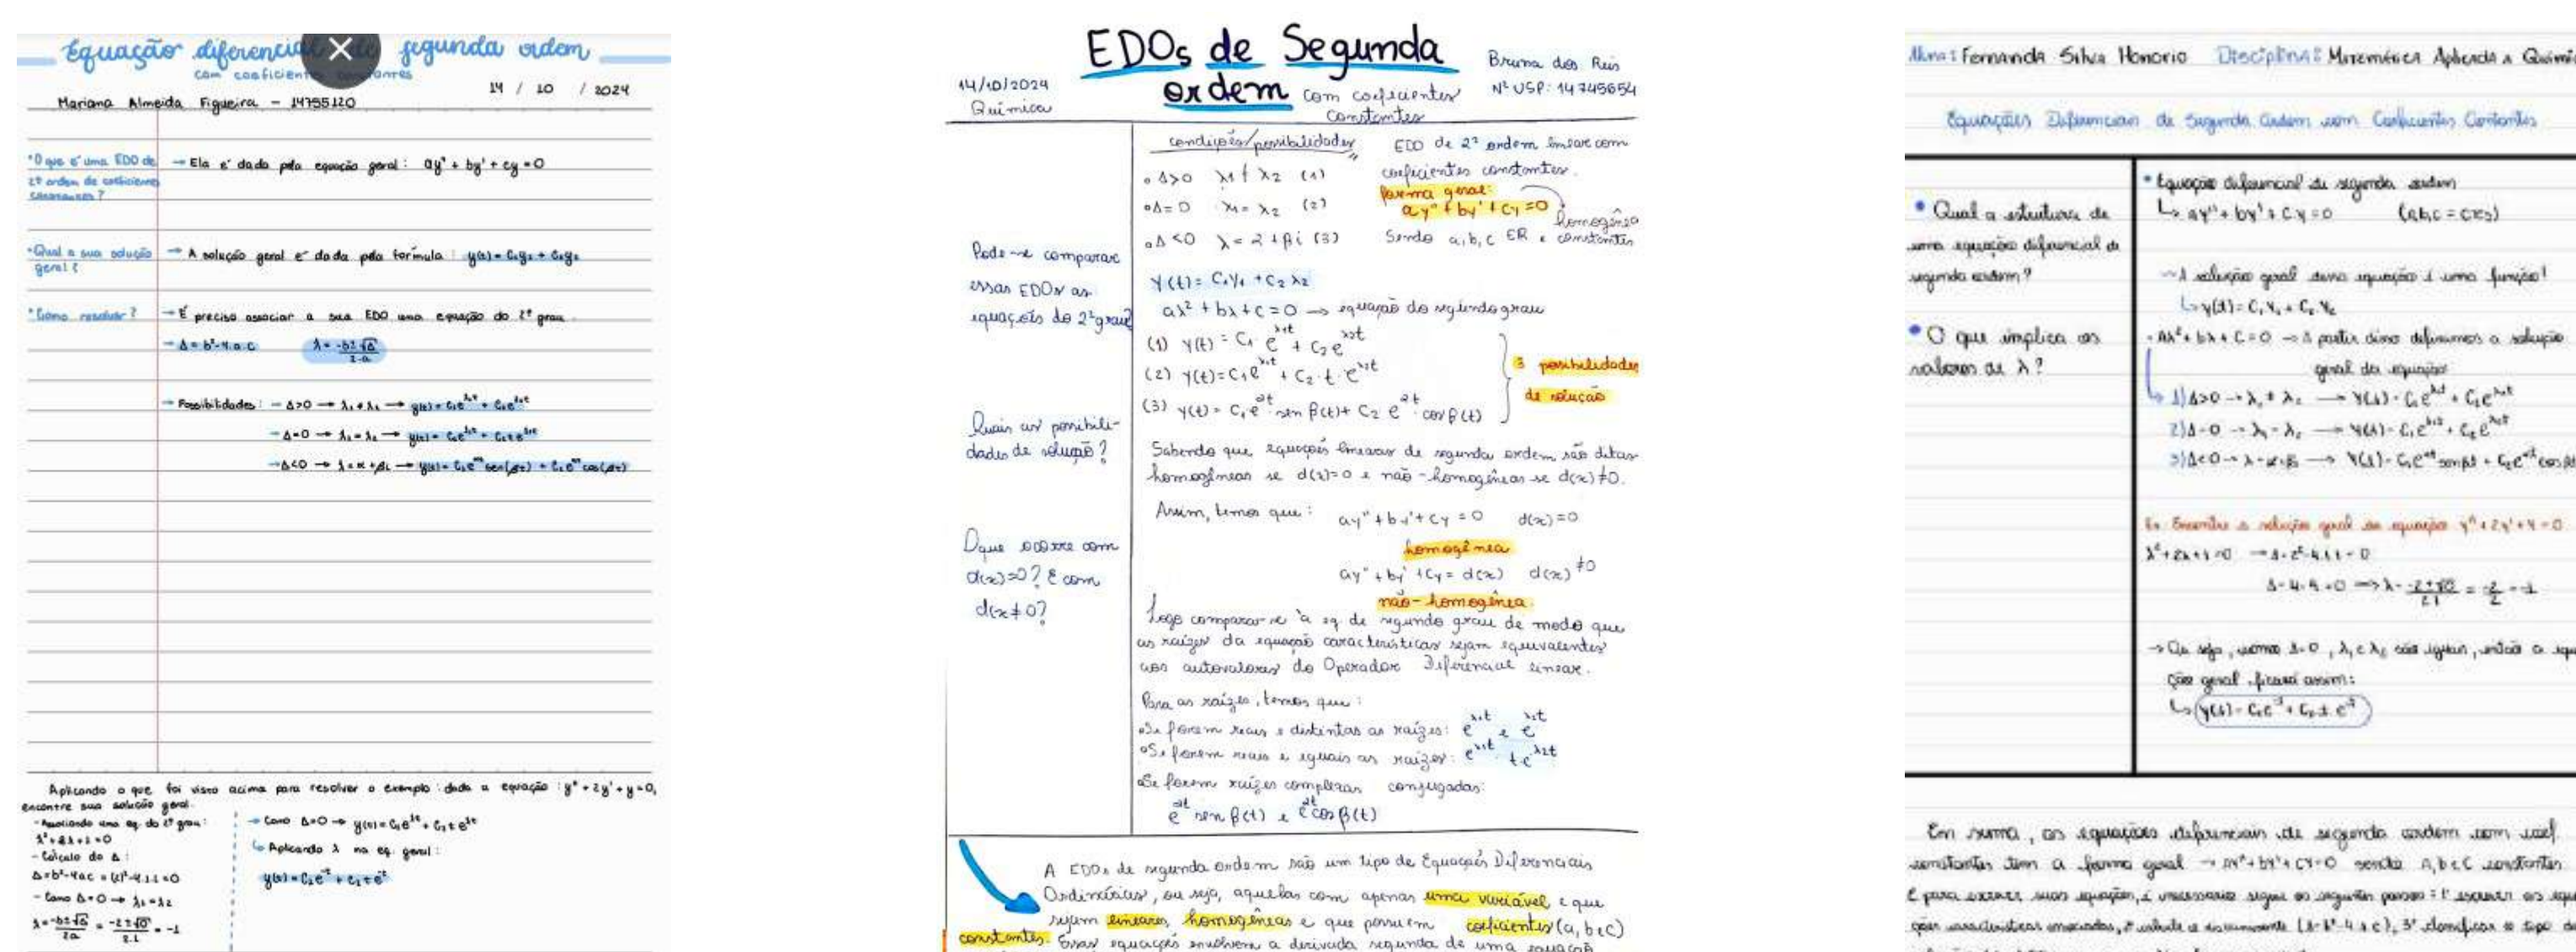 Equação diferencial de segunda ordem
com coeficientes constantes
14 / 10 / 2024
Mariana Almeida Figueira - 14755120
• O que é uma EDO de
2ª ordem de coeficientes
constantes?
→ Ela é dada pela equação geral: ay" + by' + cy = 0
• Qual a sua solução
geral?
→ A solução geral é dada pela fórmula: y(t) = C₁y₁ + C₂y₂
• Como resolver?
→ É preciso associar a sua EDO uma equação do 2º grau.
→ Δ = b²-4.a.c λ = -b±√Δ / 2.a
→ Possibilidades: → Δ>0 → λ₁ ≠ λ₂ → y(t) = C₁e^λ₁t + C₂e^λ₂t
→ Δ=0 → λ₁ = λ₂ → y(t) = C₁e^λ₁t + C₂te^λ₂t
→ Δ<0 → λ = α + βi → y(t) = C₁e^αt sen(βt) + C₂e^αt cos(βt)
Aplicando o que foi visto acima para resolver o exemplo: dada a equação: y" + 2y' + y = 0,
encontre sua solução geral.
- Associando uma eq. do 2º grau:
λ² + 2λ + 1 = 0
- Cálculo do Δ:
Δ = b²-4ac = (2)²-4.1.1 = 0
- Como Δ=0 → λ₁ = λ₂
λ = -b±√Δ / 2a = -2±√0 / 2.1 = -1
→ Como Δ=0 → y(t) = C₁e^λt + C₂te^λt
↳ Aplicando λ na eq. geral:
y(t) = C₁e^-t + C₂te^-t
EDOs de Segunda
ordem com coeficientes
constantes
14/10/2024
Química
Bruna dos Reis
Nº USP: 14745654
Pode-se comparar
essas EDOs as
equações do 2º grau?
Quais as possibili-
dades de solução?
O que ocorre com
d(x)=0? E com
d(x≠0?
condições/possibilidades
• Δ>0 λ1 ≠ λ2 (1)
• Δ=0 λ1 = λ2 (2)
• Δ<0 λ = 2 + βi (3)
EDO de 2ª ordem linear com
coeficientes constantes.
forma geral:
ay" + by' + cy = 0
homogênea
Sendo a,b,c ∈R e constantes
Y(t) = C₁y₁ + C₂ λ2
aλ² + bλ + c = 0 → equação do segundo grau
(1) y(t) = C₁ e^λ1t + C₂e^λ2t
(2) y(t) = C₁e^λ1t + C₂ . t . e^λ2t
(3) y(t) = C₁e^2t . sen β(t) + C₂ e^2t . cos β(t)
3 possibilidades
de solução
Sabendo que equações lineares de segunda ordem são ditas
homogêneas se d(x)=0 e não-homogêneas se d(x)≠0.
Assim, temos que: ay" + by' + cy = 0 d(x)=0
homogênea
ay" + by' + cy = d(x) d(x) ≠0
não-homogênea.
Logo comparar-se à eq. de segundo grau de modo que
as raízes da equação características sejam equivalentes
aos autovalores do Operador Diferencial linear.
Para as raízes, temos que:
• Se forem reais e distintas as raízes: e^λ1t e e^λ2t
• Se forem reais e iguais as raízes: e^λ1t . t.e^λ2t
• Se forem raízes complexas conjugadas:
e^2t sen β(t) e e^2t cos β(t)
A EDOs de segunda ordem são um tipo de Equações Diferenciais
Ordinárias, ou seja, aquelas com apenas uma variável e que
sejam lineares, homogêneas e que possuem coeficientes (a, b e C)
constantes. Essas equações envolvem a derivada segunda de uma equação
Aluna: Fernanda Silva Honorio Disciplina: Matemática Aplicada a Químic
Equações Diferenciais de Segunda Ordem com Coeficientes Constantes
• Qual a estrutura de
uma equação diferencial de
segunda ordem?
• O que implica os
valores de λ?
• Equação diferencial de segunda ordem
↳ ay" + by' + cy = 0 (a,b,c = ctes)
~ A solução geral dessa equação é uma função!
↳ y(t) = C₁ y₁ + C₂ y₂
• Aλ² + bλ + C = 0 → A partir disso definimos a solução
geral da equação
1) Δ>0 → λ₁ ≠ λ₂ → y(t) = C₁e^λ₁t + C₂e^λ₂t
2) Δ=0 → λ₁ = λ₂ → y(t) = C₁e^λ₁t + C₂e^λ₂t
3) Δ<0 → λ = α+βi → y(t) = C₁e^αt sen βt + C₂e^αt cos βt
Ex: Encontre a solução geral da equação y" + 2y' + y = 0
λ² + 2λ + 1 = 0 → Δ = 2²-4.1.1 = 0
Δ = 4-4 = 0 → λ = -2±√0 / 2.1 = -2/2 = -1
→ Ou seja, como Δ=0, λ₁ e λ₂ são iguais, então a equa
ção geral ficará assim:
↳ y(t) = C₁e^-t + C₂te^-t
Em suma, as equações diferenciais de segunda ordem com coef.
constantes tem a forma geral → Ay" + by' + cy = 0 sendo A, b e C constantes.
E para escrever suas equações, é necessário seguir os seguintes passos: 1º escrever as equa
ções características associadas, 2º calcule o discriminante (Δ = b²-4 a c), 3º classificar o tipo de